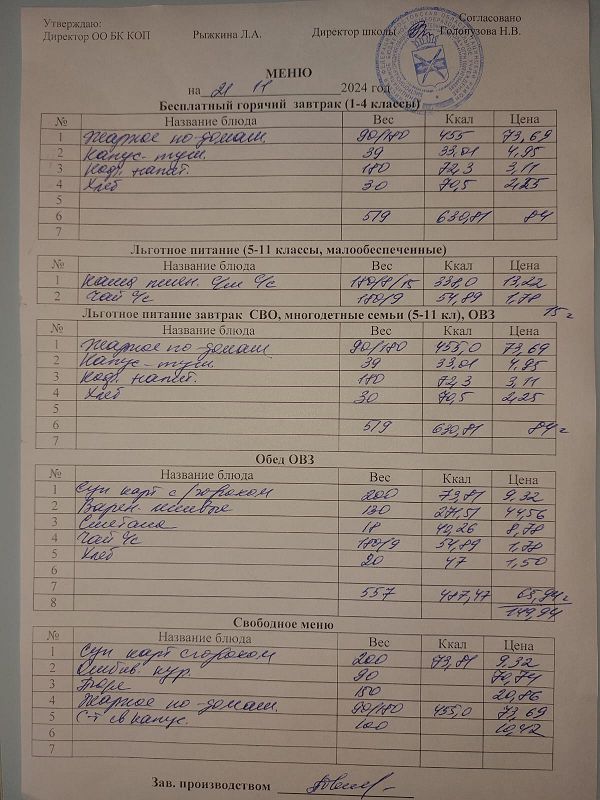 Утверждаю: Согласовано
Директор ОО БК КОП Рыжкина Л.А. Директор школы Голопузова Н.В.
МЕНЮ
на 21 11 2024 год
Бесплатный горячий завтрак (1-4 классы)
№ Название блюда Вес Ккал Цена
1 Жаркое по-домаш. 90/180 455 73,69
2 Капус. туш. 39 33,01 4,95
3 Коф. напит. 180 72,3 3,11
4 Хлеб 30 70,5 2,25
5
6 519 630,81 84
7
Льготное питание (5-11 классы, малообеспеченные)
№ Название блюда Вес Ккал Цена
1 Каша с/м с/с 338,0 13,22
2 Чай с/с 180/9 54,89 1,78
15
Льготное питание завтрак СВО, многодетные семьи (5-11 кл), ОВЗ
№ Название блюда Вес Ккал Цена
1 Жаркое по-домаш 90/180 455,0 73,69
2 Капус. туш. 39 33,01 4,95
3 Коф. напит. 180 72,3 3,11
4 Хлеб 30 70,5 2,25
5
6 519 630,81 84
7
Обед ОВЗ
№ Название блюда Вес Ккал Цена
1 Суп карт с горохом 200 73,81 9,32
2 Варен. 130 271,51 44,56
3 Сметана 18 40,26 8,78
4 Чай с/с 180/9 54,89 1,78
5 Хлеб 20 47 1,50
6
7 557 487,47 65,94
8 149,94
Свободное меню
№ Название блюда Вес Ккал Цена
1 Суп карт с горохом 200 73,81 9,32
2 Отбив. кур. 90 70,74
3 150 20,86
4 Жаркое по-домаш. 90/180 455,0 73,69
5 С-т св капус. 100 10,42
6
7
Зав. производством